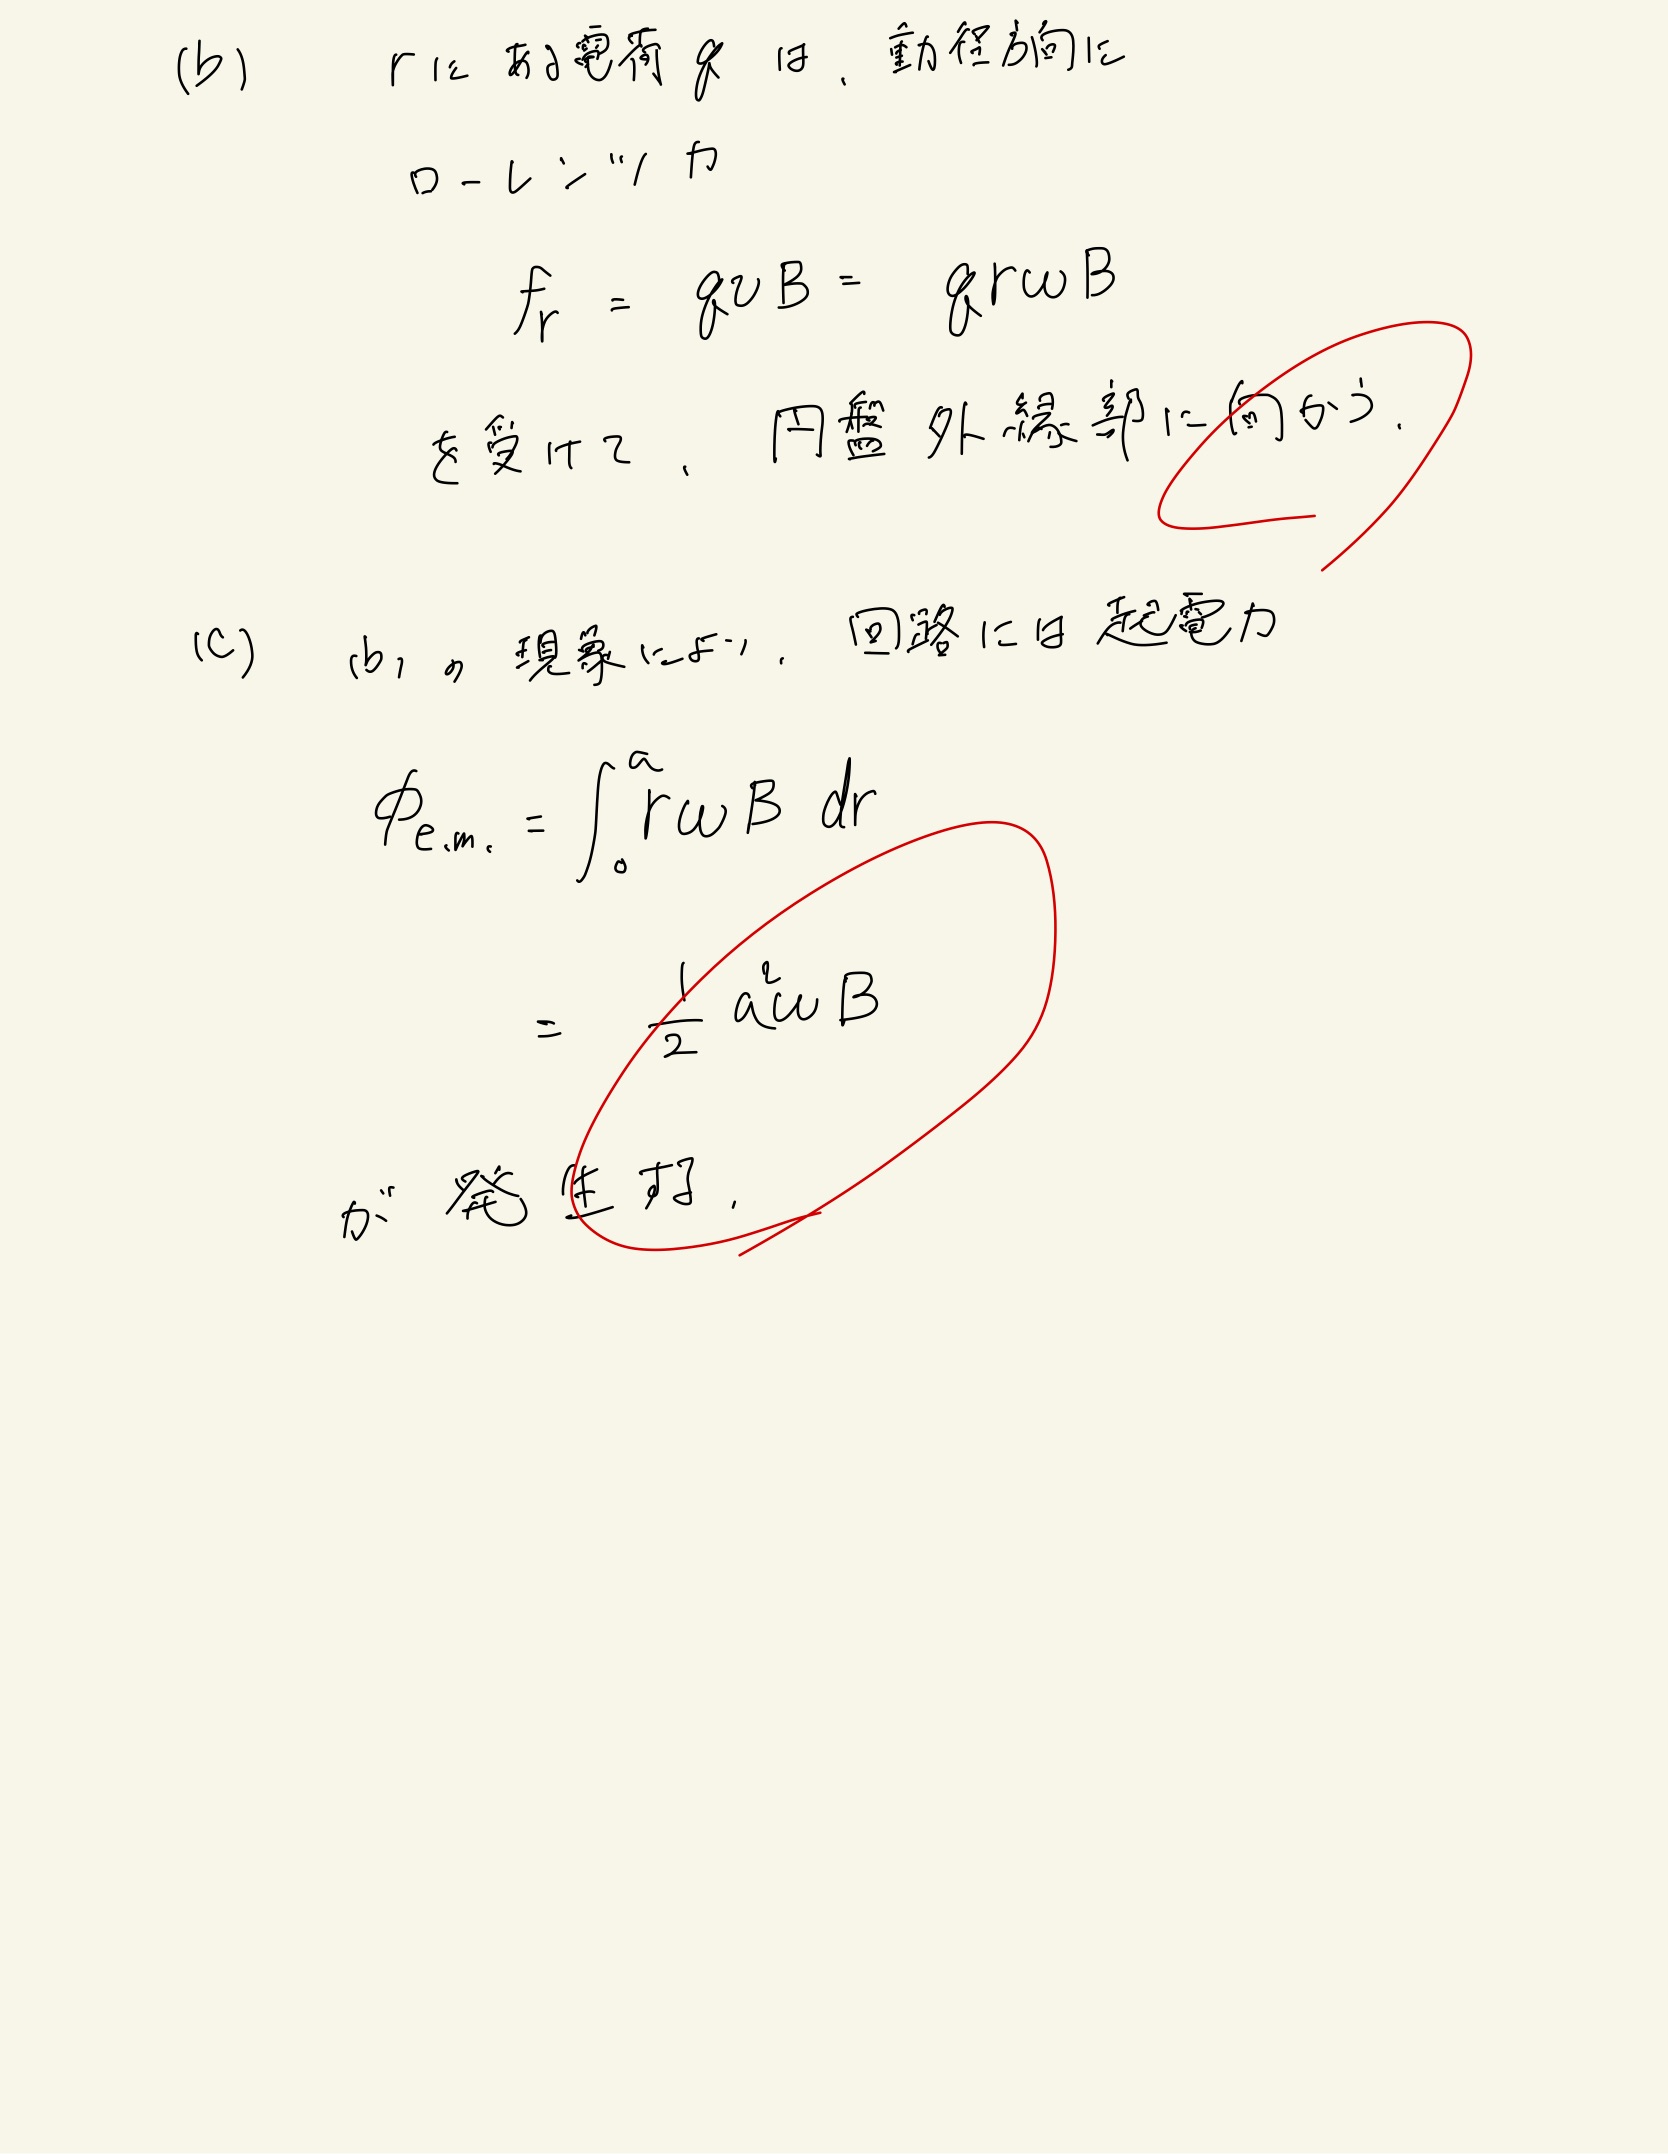 (b) rにある電荷qは、動径方向に
ローレンツ力
f_r = qvB = qrωB
を受けて、円盤外縁部に向かう.
(c) (b)の現象により、回路には起電力
φ_e.m. = ∫_0^a rωB dr
= 1/2 a²ωB
が発生する.